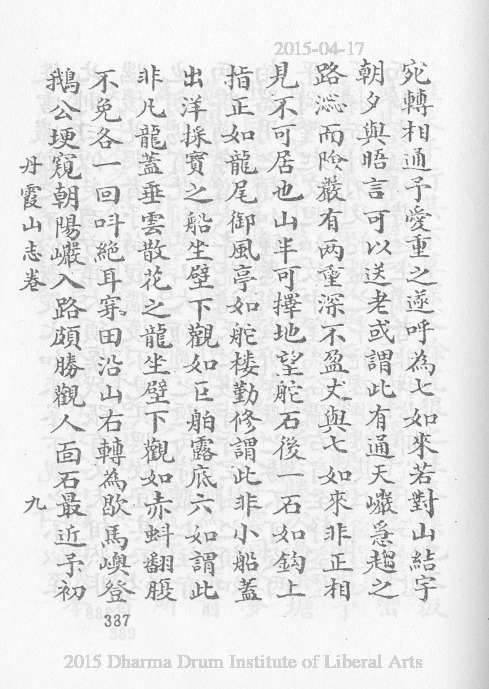 2015-04-17
宛轉相通予愛重之遂呼為七如來若對山結宇
朝夕與晤言可以送老或謂此有通天巖急趨之
路澁而險巖有两重深不盈丈與七如來非正相
見不可居也山半可擇地望舵石後一石如鈎上
指正如龍尾御風亭如舵楼勤修謂此非小船蓋
出洋採寶之船坐壁下觀如巨舶露底六如謂此
非凡龍蓋垂雲散花之龍坐壁下觀如赤蚪翻腹
不免各一回呌絶耳穿田沿山右轉為歇馬嶼登
鵝公埂窺朝陽巖入路頗勝觀人面石最近予初
丹霞山志卷
九
387
2015 Dharma Drum Institute of Liberal Arts